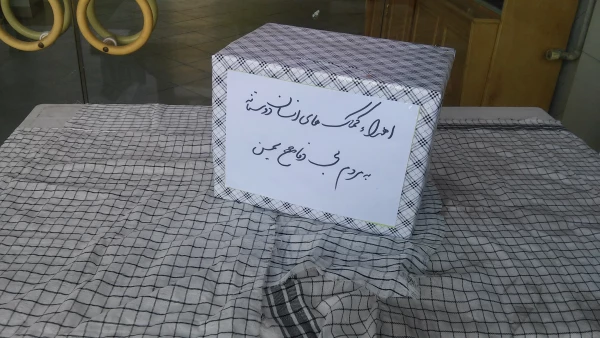 اهداء کمک های انسان دوستانه
به مردم بی دفاع یمن